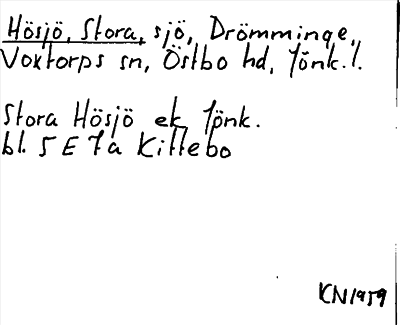 Hösjö, Stora, sjö, Drömminge,
Voxtorps sn, Östbo hd, Jönk. l.
Stora Hösjö ek, Jönk.
bl. 5 E 7a Kittebo
KN1959